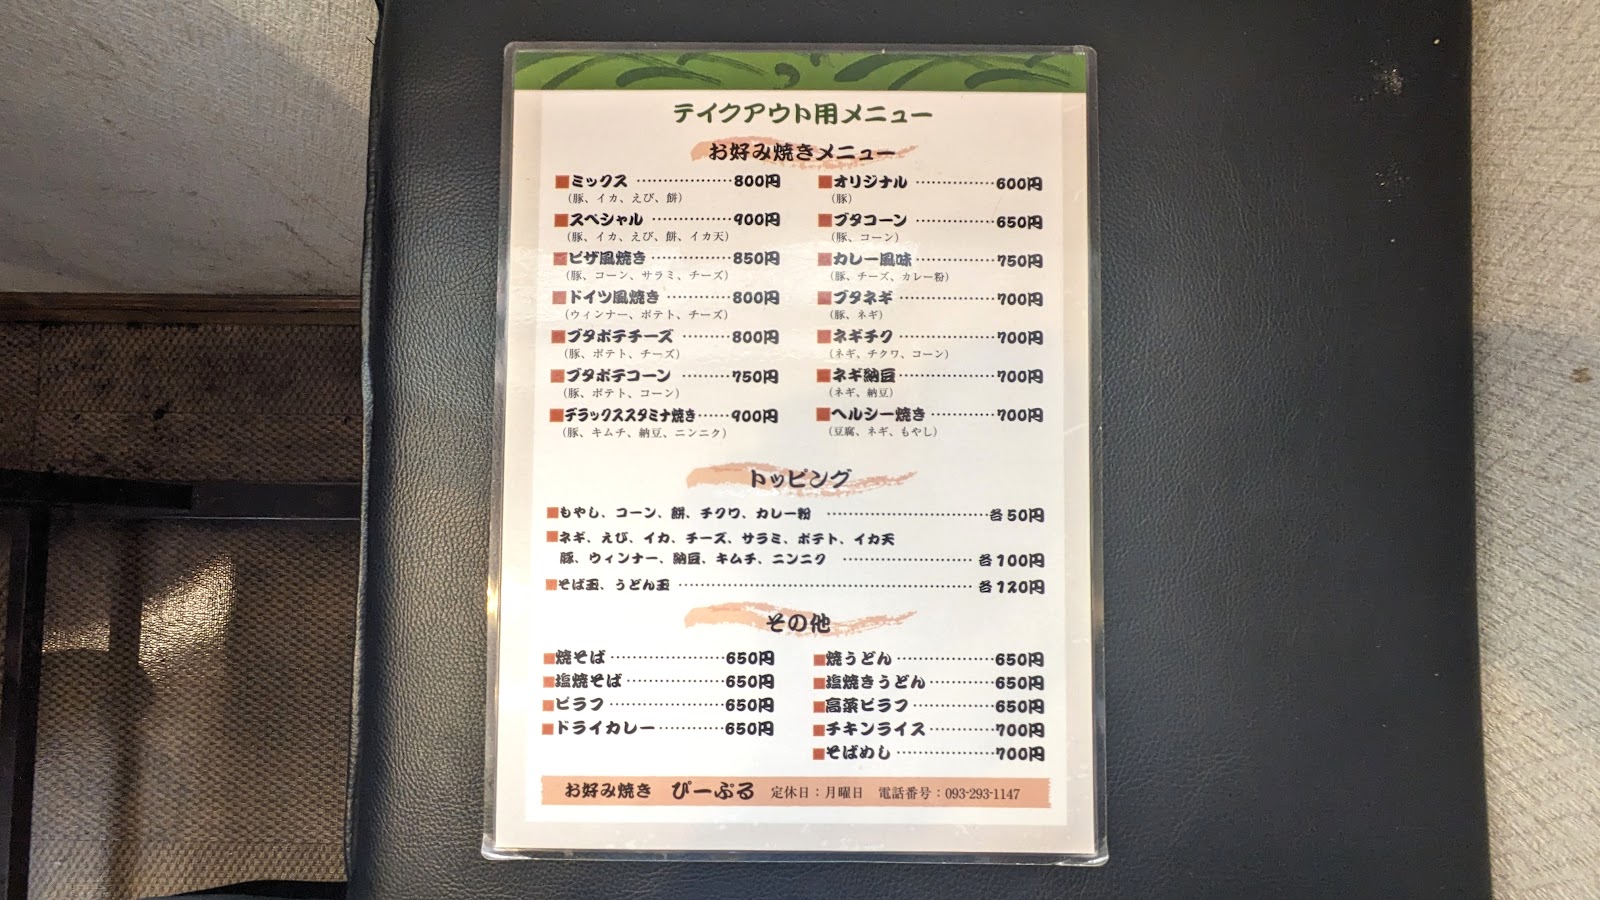 テイクアウト用メニュー
お好み焼きメニュー
ミックス ………………800円
(豚、イカ、えび、餅)
スペシャル ……………900円
(豚、イカ、えび、餅、イカ天)
ピザ風焼き ……………850円
(豚、コーン、サラミ、チーズ)
ドイツ風焼き …………800円
(ウィンナー、ポテト、チーズ)
ブタポテチーズ ………800円
(豚、ポテト、チーズ)
ブタポテコーン ………750円
(豚、ポテト、コーン)
デラックススタミナ焼き……900円
(豚、キムチ、納豆、ニンニク)
オリジナル ……………600円
(豚)
ブタコーン ……………650円
(豚、コーン)
カレー風味 ……………750円
(豚、チーズ、カレー粉)
ブタネギ ………………700円
(豚、ネギ)
ネギチク ………………700円
(ネギ、チクワ、コーン)
ネギ納豆 ………………700円
(ネギ、納豆)
ヘルシー焼き …………700円
(豆腐、ネギ、もやし)
トッピング
もやし、コーン、餅、チクワ、カレー粉 ……………………………各50円
ネギ、えび、イカ、チーズ、サラミ、ポテト、イカ天
豚、ウィンナー、納豆、キムチ、ニンニク ……………………各100円
そば玉、うどん玉 ………………………………………………各120円
その他
焼そば …………………650円
塩焼そば ………………650円
ピラフ …………………650円
ドライカレー …………650円
焼うどん ………………650円
塩焼きうどん …………650円
高菜ピラフ ……………650円
チキンライス …………700円
そばめし ………………700円
お好み焼き ぴーぷる 定休日：月曜日 電話番号：093-293-1147